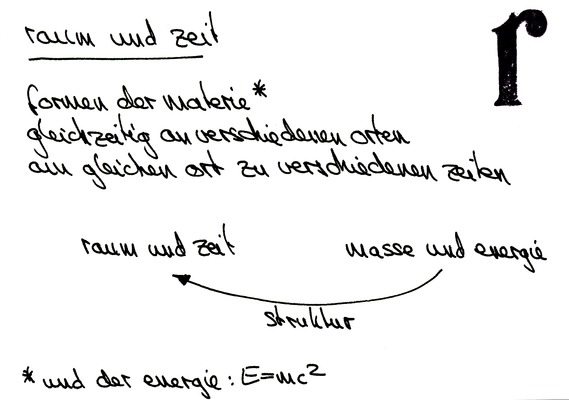 raum und zeit
r
formen der materie*
gleichzeitig an verschiedenen orten
am gleichen ort zu verschiedenen zeiten
raum und zeit masse und energie
struktur
* und der energie: E=mc²